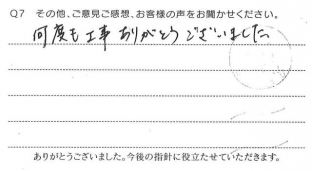 Q7 その他、ご意見ご感想、お客様の声をお聞かせください。
何度も工事ありがとうございました
ありがとうございました。今後の指針に役立たせていただきます。